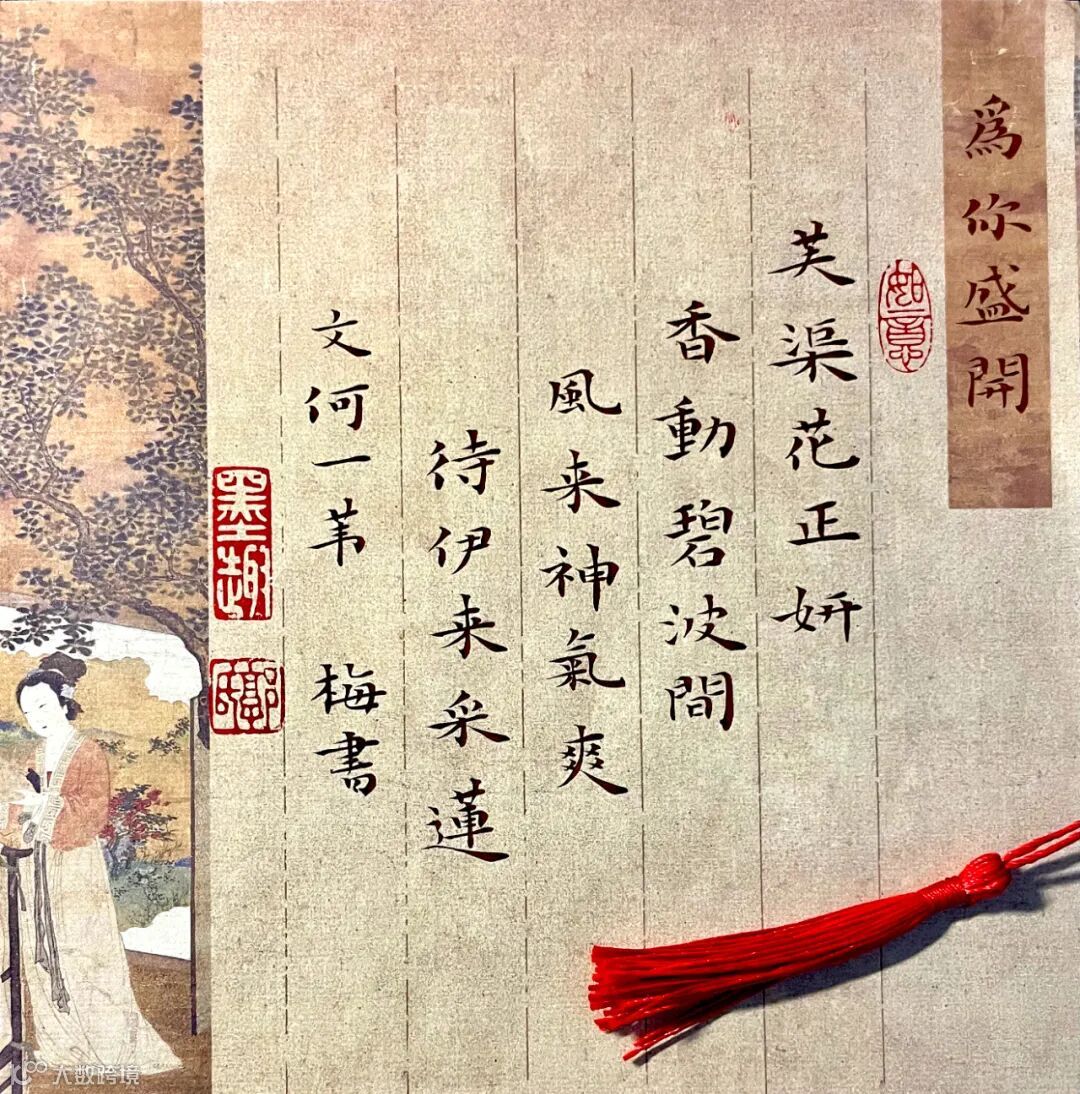 為你盛開
如意
芙渠花正妍
香動碧波間
風来神氣爽
待伊来采蓮
文何一苇 梅書
墨趣
大数跨境